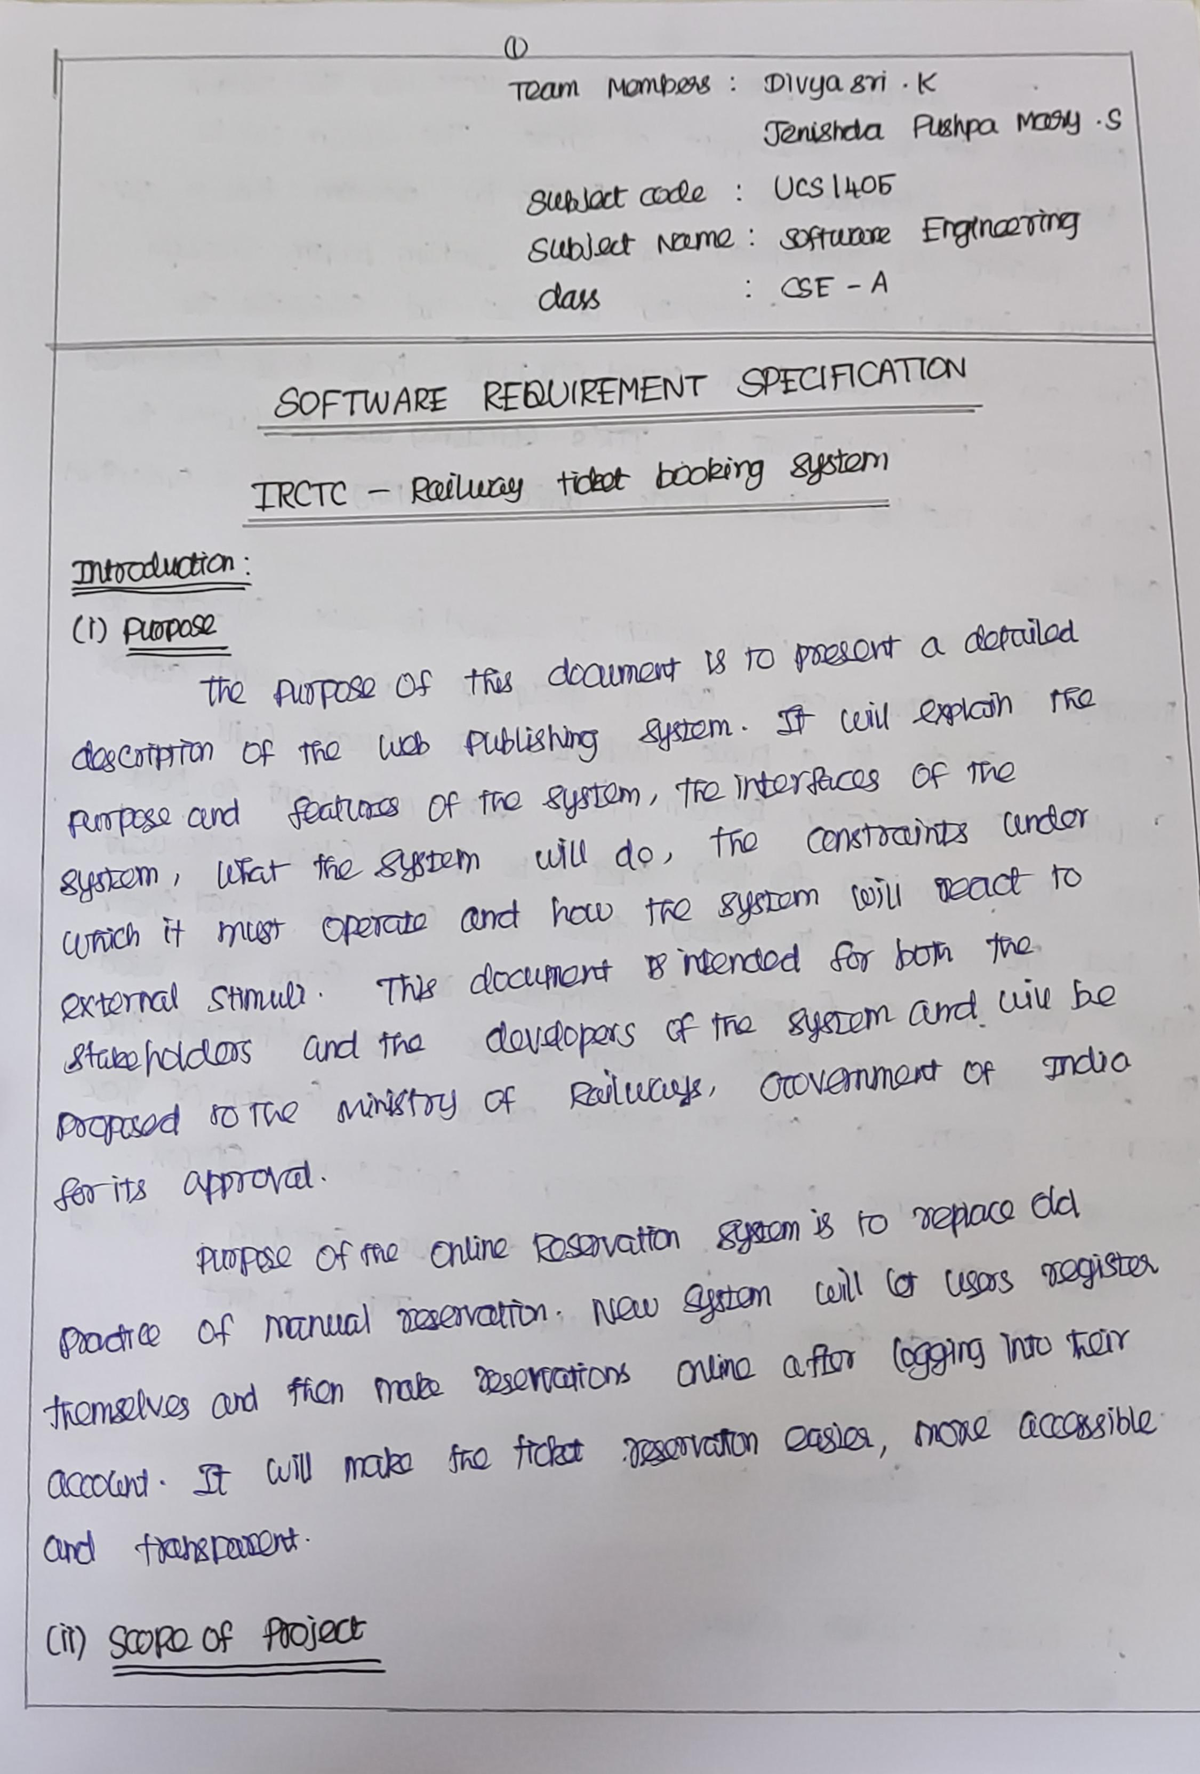 ①
Team Members : Divya sri . K
Jenishda Pushpa Mary . S
Subject code : UCS1405
Subject Name : Software Engineering
class : CSE - A
SOFTWARE REQUIREMENT SPECIFICATION
IRCTC - Railway ticket booking system
Introduction :
(i) Purpose
The purpose of this document is to present a detailed
description of the web publishing system. It will explain the
purpose and features of the system, the interfaces of the
system, what the system will do, the constraints under
which it must operate and how the system will react to
external stimuli. This document is intended for both the
stakeholders and the developers of the system and will be
proposed to the ministry of Railways, Government of India
for its approval.
Purpose of the online Reservation system is to replace old
practice of manual reservation. New system will let users register
themselves and then make reservations online after logging into their
account. It will make the ticket reservation easier, more accessible
and transparent.
(ii) Scope of Project